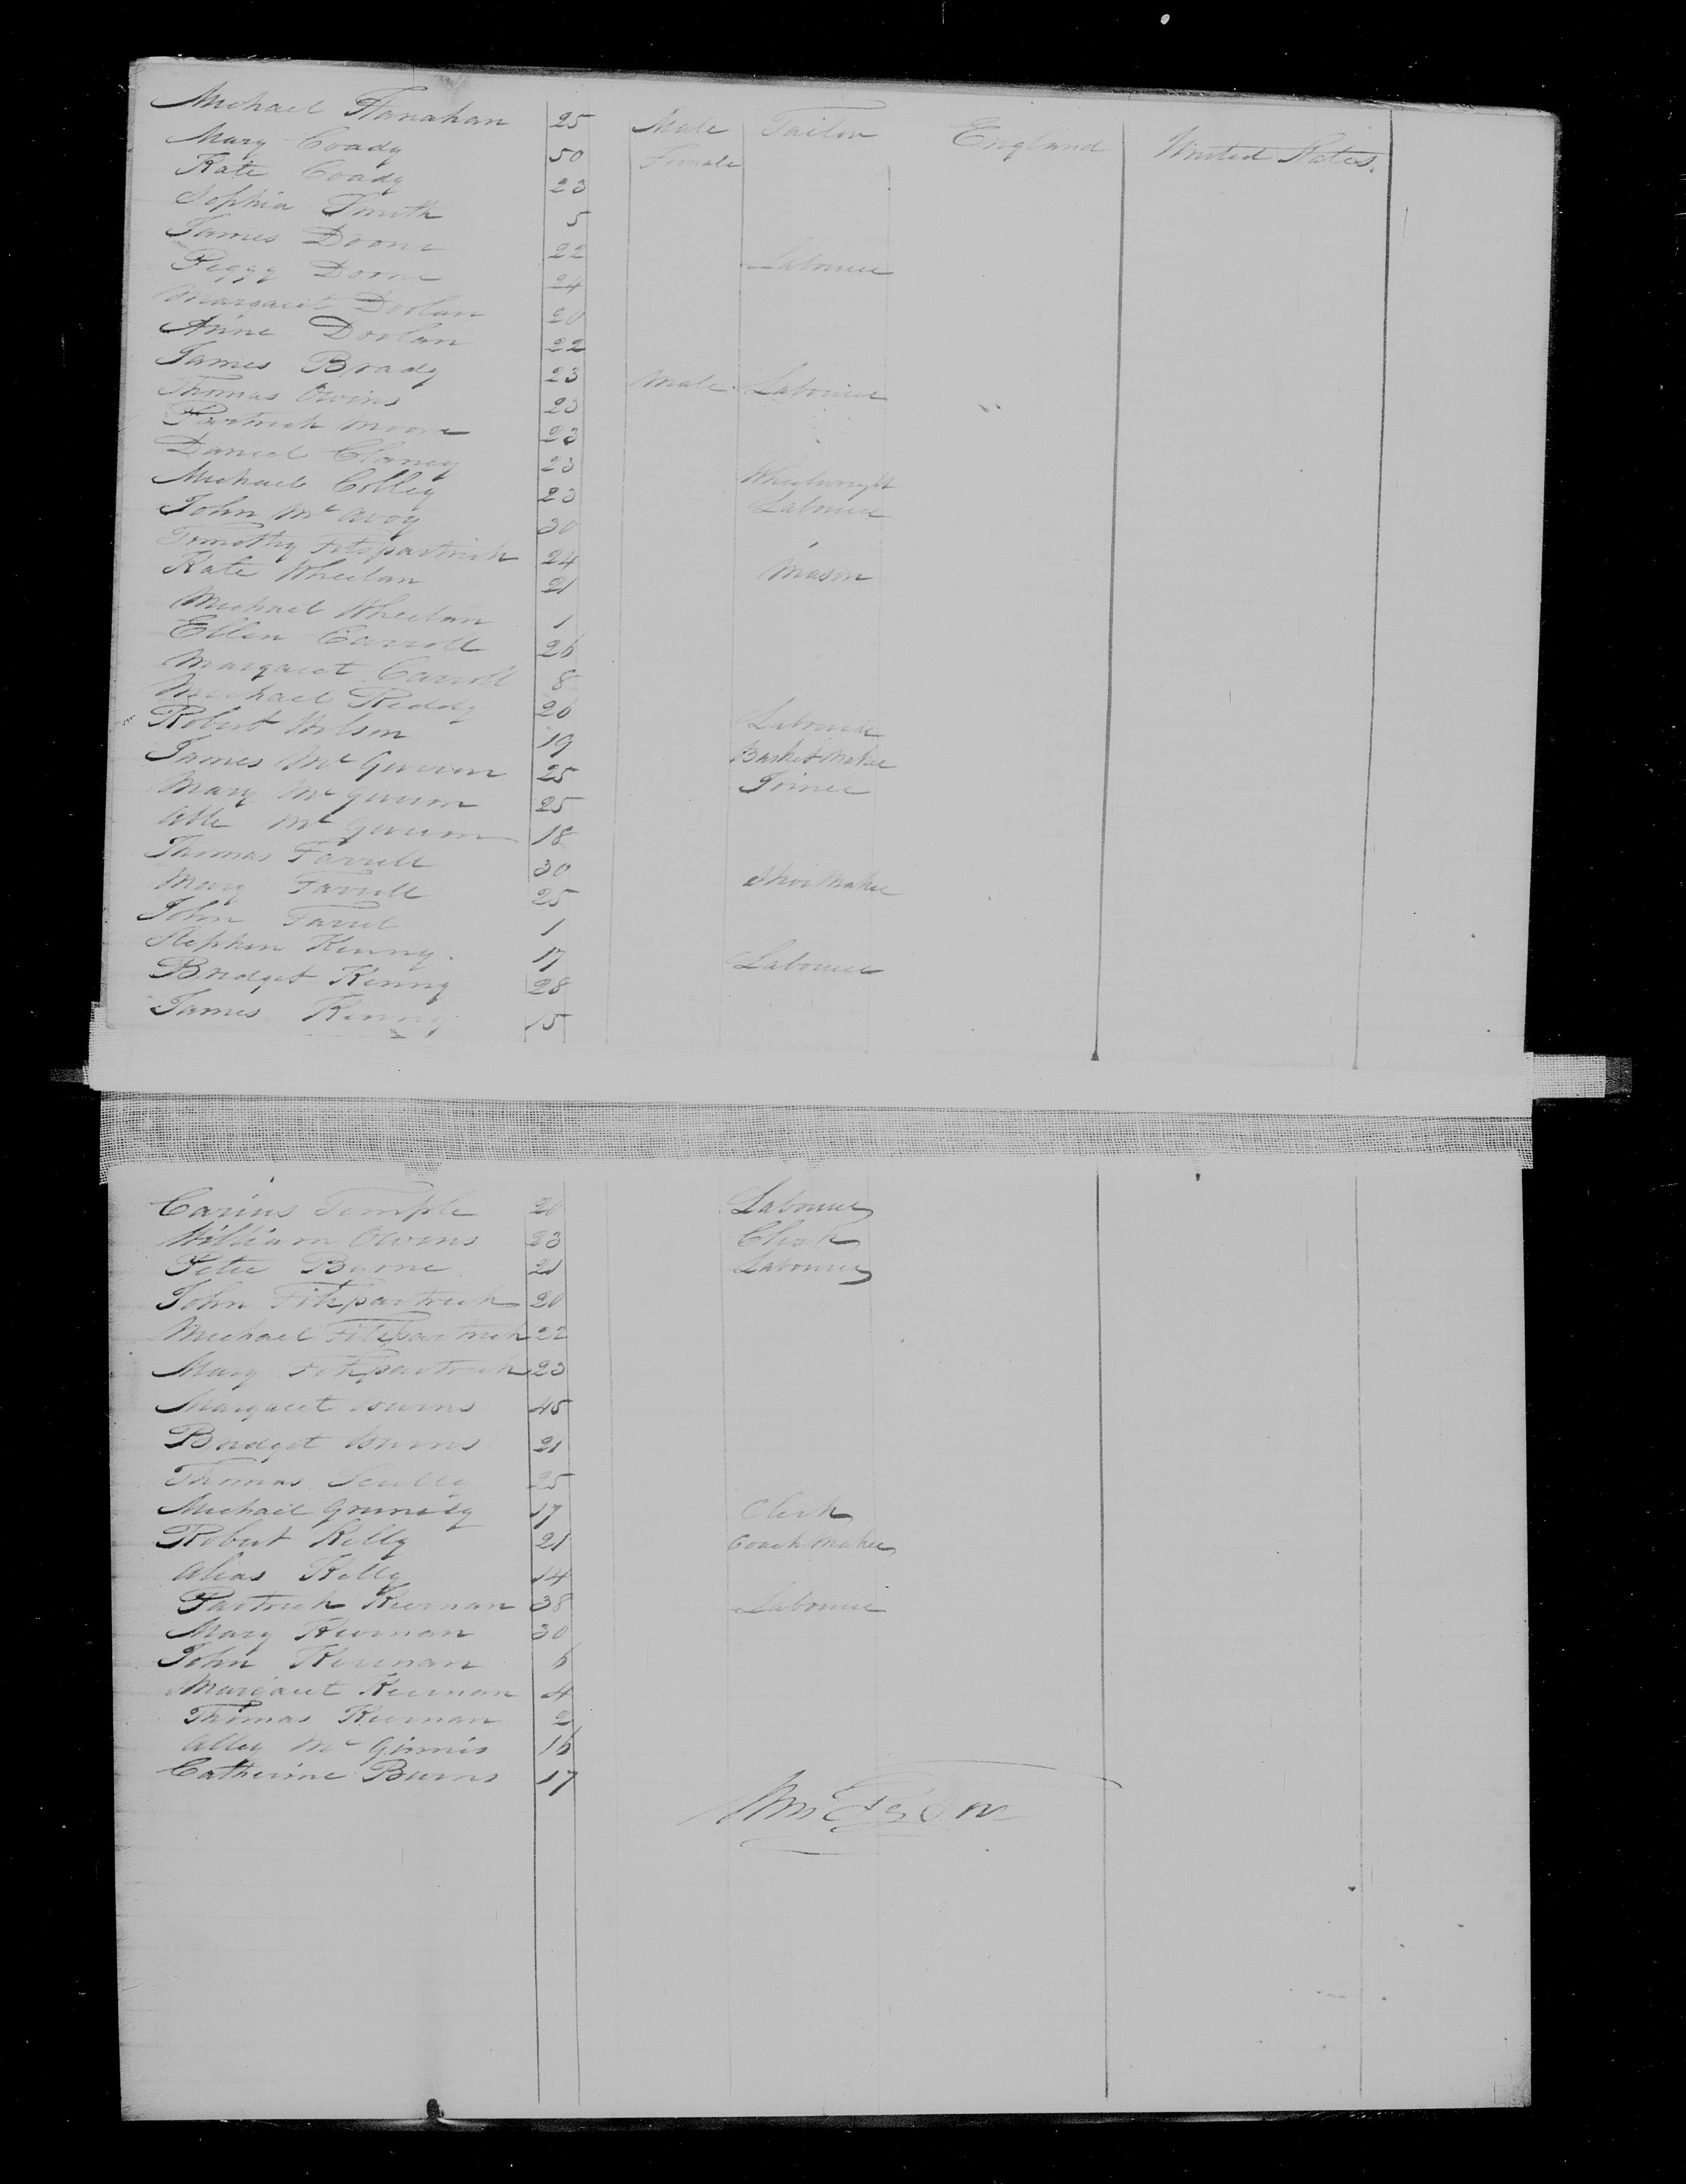 Michael Flanahan 25 Male Tailor England United States.
Mary Coady 50 Female
Kate Coady 23
Sophia Smith 5
James Doone 22 Labourer
Peggy Doone 24
Margaret Doolan 20
Anne Doolan 22
James Brady 23 Male Labourer
Thomas Owins 23
Partrick Moore 23
Daniel Clancy 23 Wheelwright
Michael Colley 23 Labourer
John Mc avoy 30
Timothy Fitspartrick 24 Mason
Kate Wheelan 21
Michael Wheelan 1
Ellen Carroll 26
Margaret Carroll 8
Michael Reddy 20 Labourer
Robert Wilson 19 Basket Maker
James Mc 25 Joiner
Mary Mc 25
Mc 18
Thomas Farrell 30 Shoe Maker
Mary Farrell 25
John Farrel 1
Stephen Kenny. 17 Labourer
Bridget Kenny 28
James Kenny 15
Temple 20 Labourer
William Owens 23 Clerk
Peter Byrne 21 Labourer
John Fitzpartrick 20
Michael Fitzpartrick 22
Mary Fitzpartrick 23
Margaret Burns 45
Bridget Burns 21
Thomas Scully 25
Michael 17 Clerk
Robert Kelly 21 Coach Maker
Alias Kelly 14
Partrick Kiernan 38 Labourer
Mary Kiernan 30
John Kiernan 6
Margaret Kiernan 4
Thomas Kiernan 2
Alley Mc Ginnis 16
Catherine Burns 17